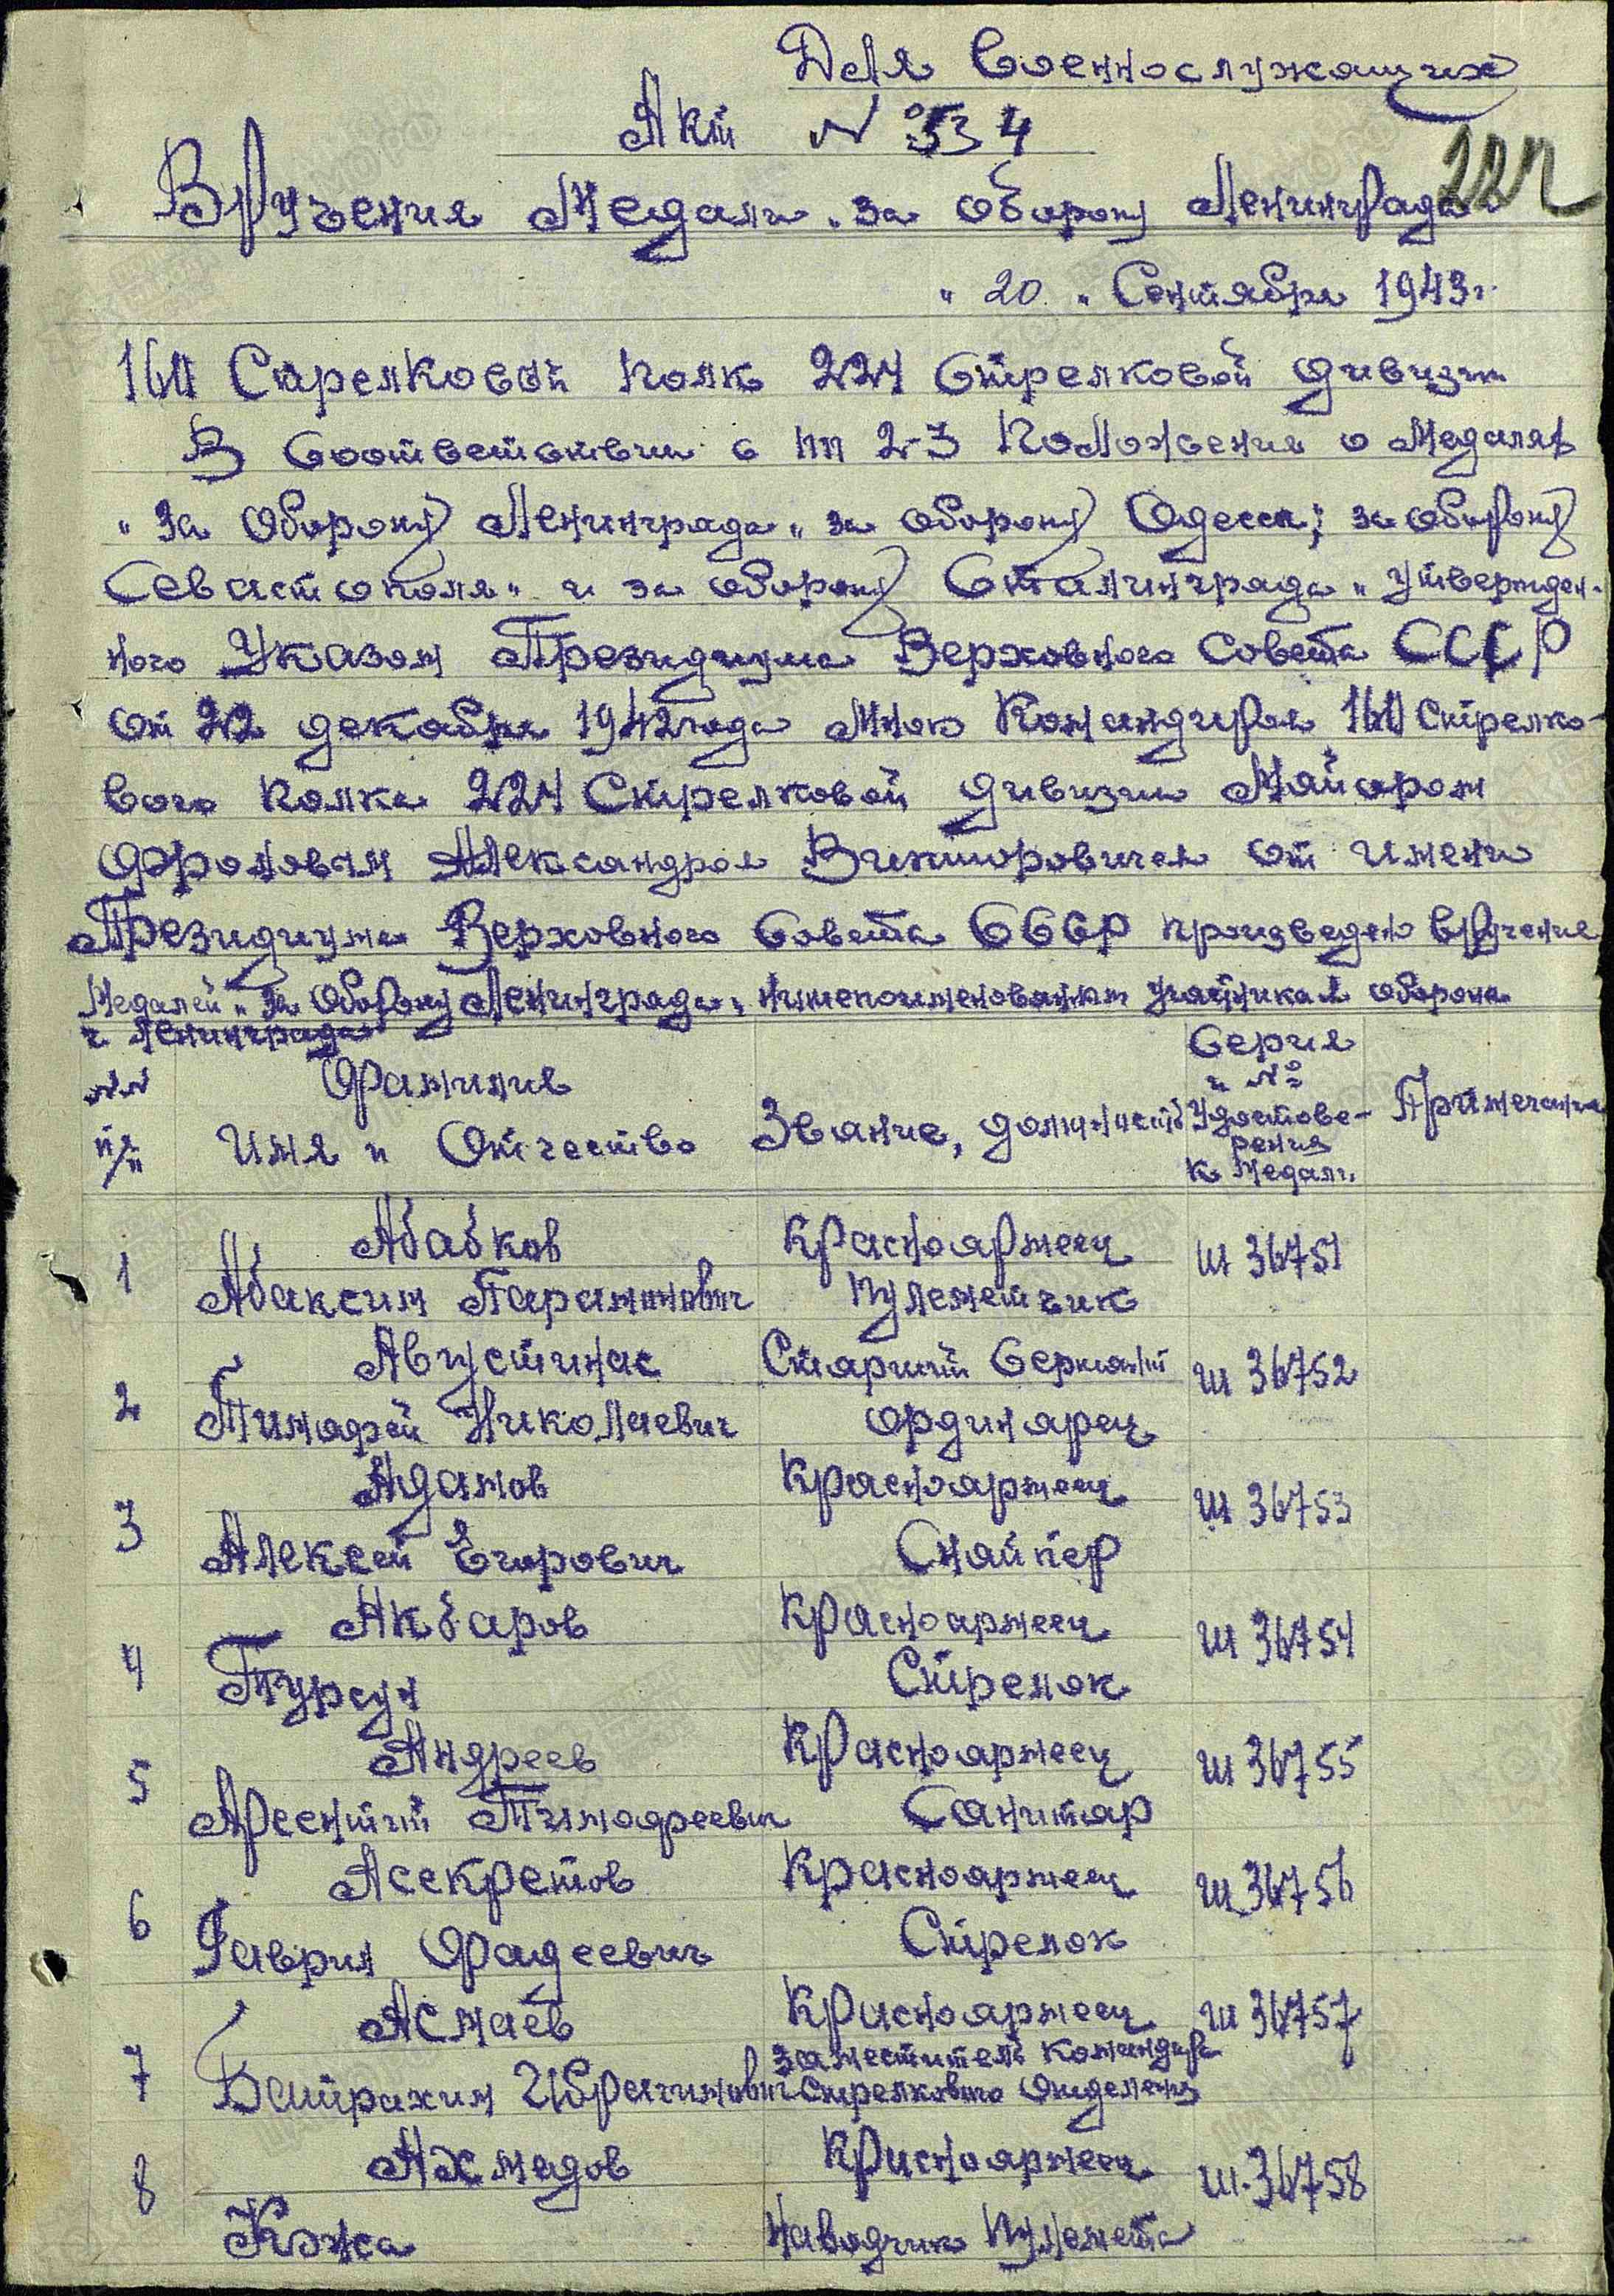 Для военнослужащих
Акт № 34
227
Вручения медали "за оборону Ленинграда"
"20" Сентября 1943г.
160 Стрелковый полк 224 стрелковой дивизии
В соответствии с пп 2-3 Положения о медалях
"За оборону Ленинграда" за оборону Одессы; за оборону
Севастополя" и за оборону Сталинграда" утвержден-
ного Указом Президиума Верховного Совета СССР
от 22 декабря 1942 года мною Командиром 160 стрелко-
вого полка 224 Стрелковой дивизии Майором
Фроловым Александром Викторовичем от имени
Президиума Верховного Совета СССР произведено вручение
Медалей "За оборону Ленинграда" нижепоименованным участникам обороны
г Ленинграда
№№ п/п Фамилия Имя и Отчество Звание, должность Серия и № Удостове-рения к медали Примечание
1 Абабков Красноармеец Ш 36751
Абаксим Парамонович пулеметчик
2 Августинас Старший Сержант Ш 36752
Тимофей Николаевич ординарец
3 Адамов Красноармеец Ш 36753
Алексей Егорович Снайпер
4 Акбаров Красноармеец Ш 36754
Турсун Стрелок
5 Андреев Красноармеец Ш 36755
Арсентий Тимофеевич Санитар
6 Асекретов Красноармеец Ш 36756
Гаврил Фадеевич Стрелок
7 Асмаев Красноармеец Ш 36757
Байрахим Ибрагимович заместитель командира стрелкового отделения
8 Ахмедов Красноармеец Ш 36758
Кожа Наводчик пулемета